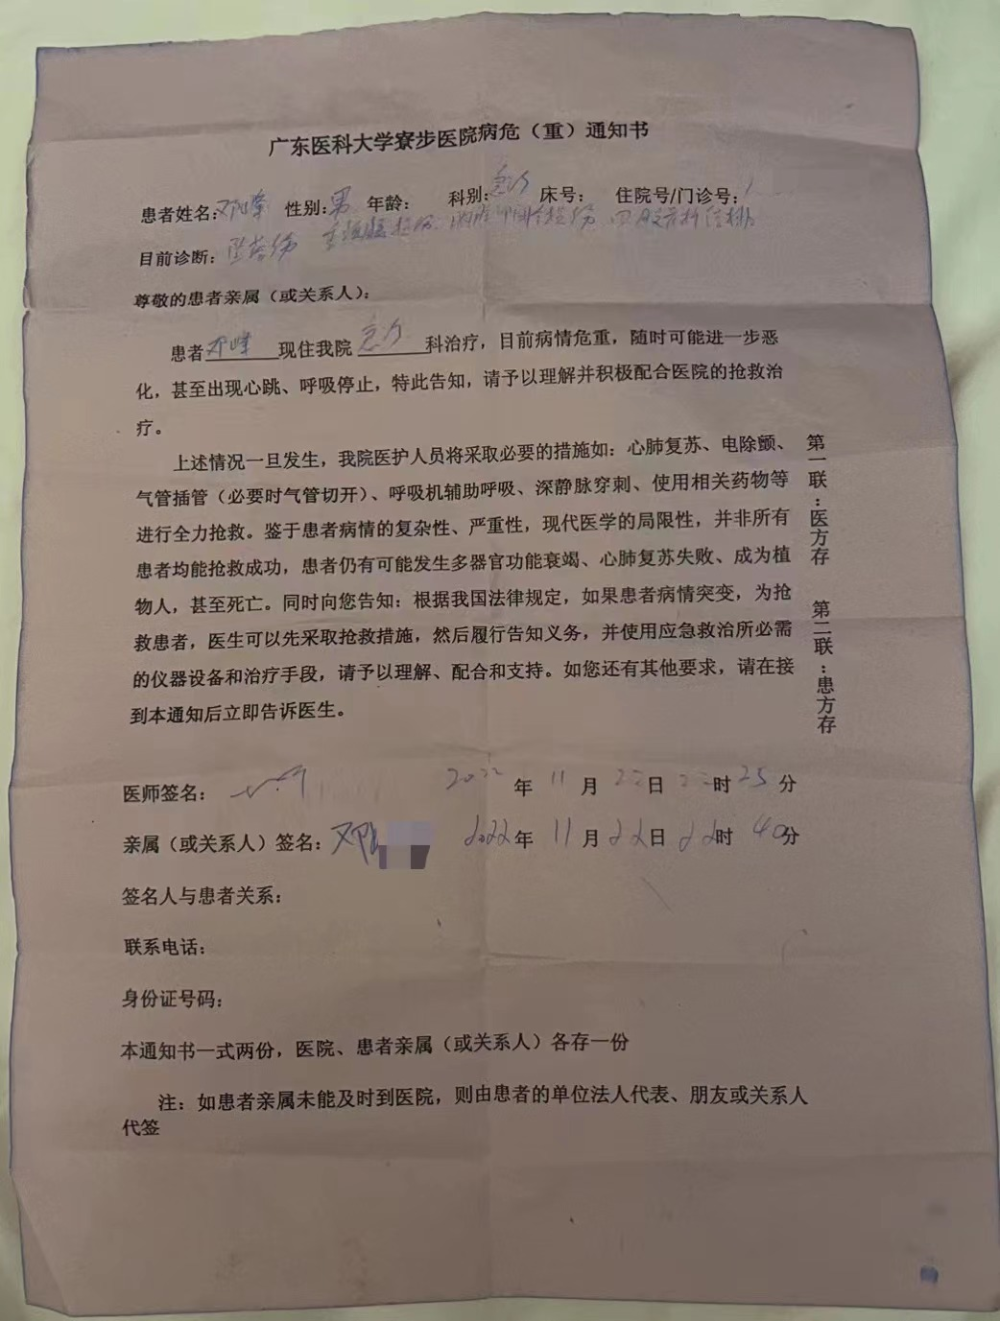 广东医科大学寮步医院病危（重）通知书
患者姓名：邓 性别：男 年龄： 科别：急疗 床号： 住院号/门诊号：
目前诊断：坠落伤
尊敬的患者亲属（或关系人）：
患者邓峰现住我院急疗科治疗，目前病情危重，随时可能进一步恶
化，甚至出现心跳、呼吸停止，特此告知，请予以理解并积极配合医院的抢救治
疗。
上述情况一旦发生，我院医护人员将采取必要的措施如：心肺复苏、电除颤、
气管插管（必要时气管切开）、呼吸机辅助呼吸、深静脉穿刺、使用相关药物等
进行全力抢救。鉴于患者病情的复杂性、严重性，现代医学的局限性，并非所有
患者均能抢救成功，患者仍有可能发生多器官功能衰竭、心肺复苏失败、成为植
物人，甚至死亡。同时向您告知：根据我国法律规定，如果患者病情突变，为抢
救患者，医生可以先采取抢救措施，然后履行告知义务，并使用应急救治所必需
的仪器设备和治疗手段，请予以理解、配合和支持。如您还有其他要求，请在接
到本通知后立即告诉医生。
第一联：医方存 第二联：患方存
医师签名： 2022年11月22日22时25分
亲属（或关系人）签名：邓 2022年11月22日22时40分
签名人与患者关系：
联系电话：
身份证号码：
本通知书一式两份，医院、患者亲属（或关系人）各存一份
注：如患者亲属未能及时到医院，则由患者的单位法人代表、朋友或关系人
代签